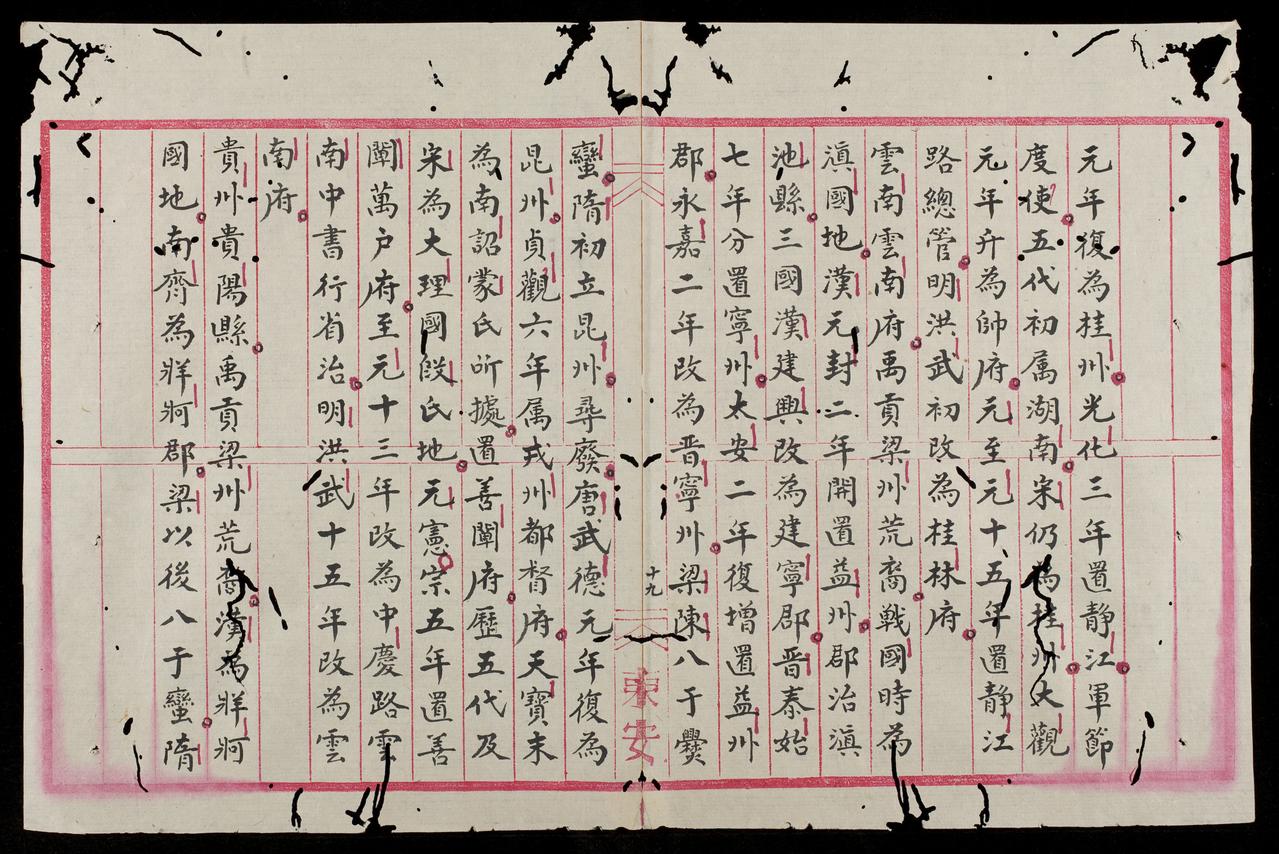 元年復為桂州光化三年置静江軍節
度使五代初属湖南宋仍為桂州大觀
元年升為帥府元至元十五年置静江
路總管明洪武初改為桂林府
雲南雲南府禹貢梁州荒裔戰國時為
滇國地漢元封二年開置益州郡治滇
池縣三國漢建興改為建寧郡晋泰始
七年分置寧州太安二年復增置益州
郡永嘉二年改為晋寧州梁陳八于爨
十九
東安
蠻隋初立昆州尋廢唐武德元年復為
昆州貞觀六年属戎州都督府天寶末
為南詔蒙氏所據置善闡府歷五代及
宋為大理國段氏地元憲宗五年置善
闡萬户府至元十三年改為中慶路雲
南中書行省治明洪武十五年改為雲
南府
貴州貴陽縣禹貢梁州荒裔漢為牂牁
國地南齊為牂牁郡梁以後八于蠻隋